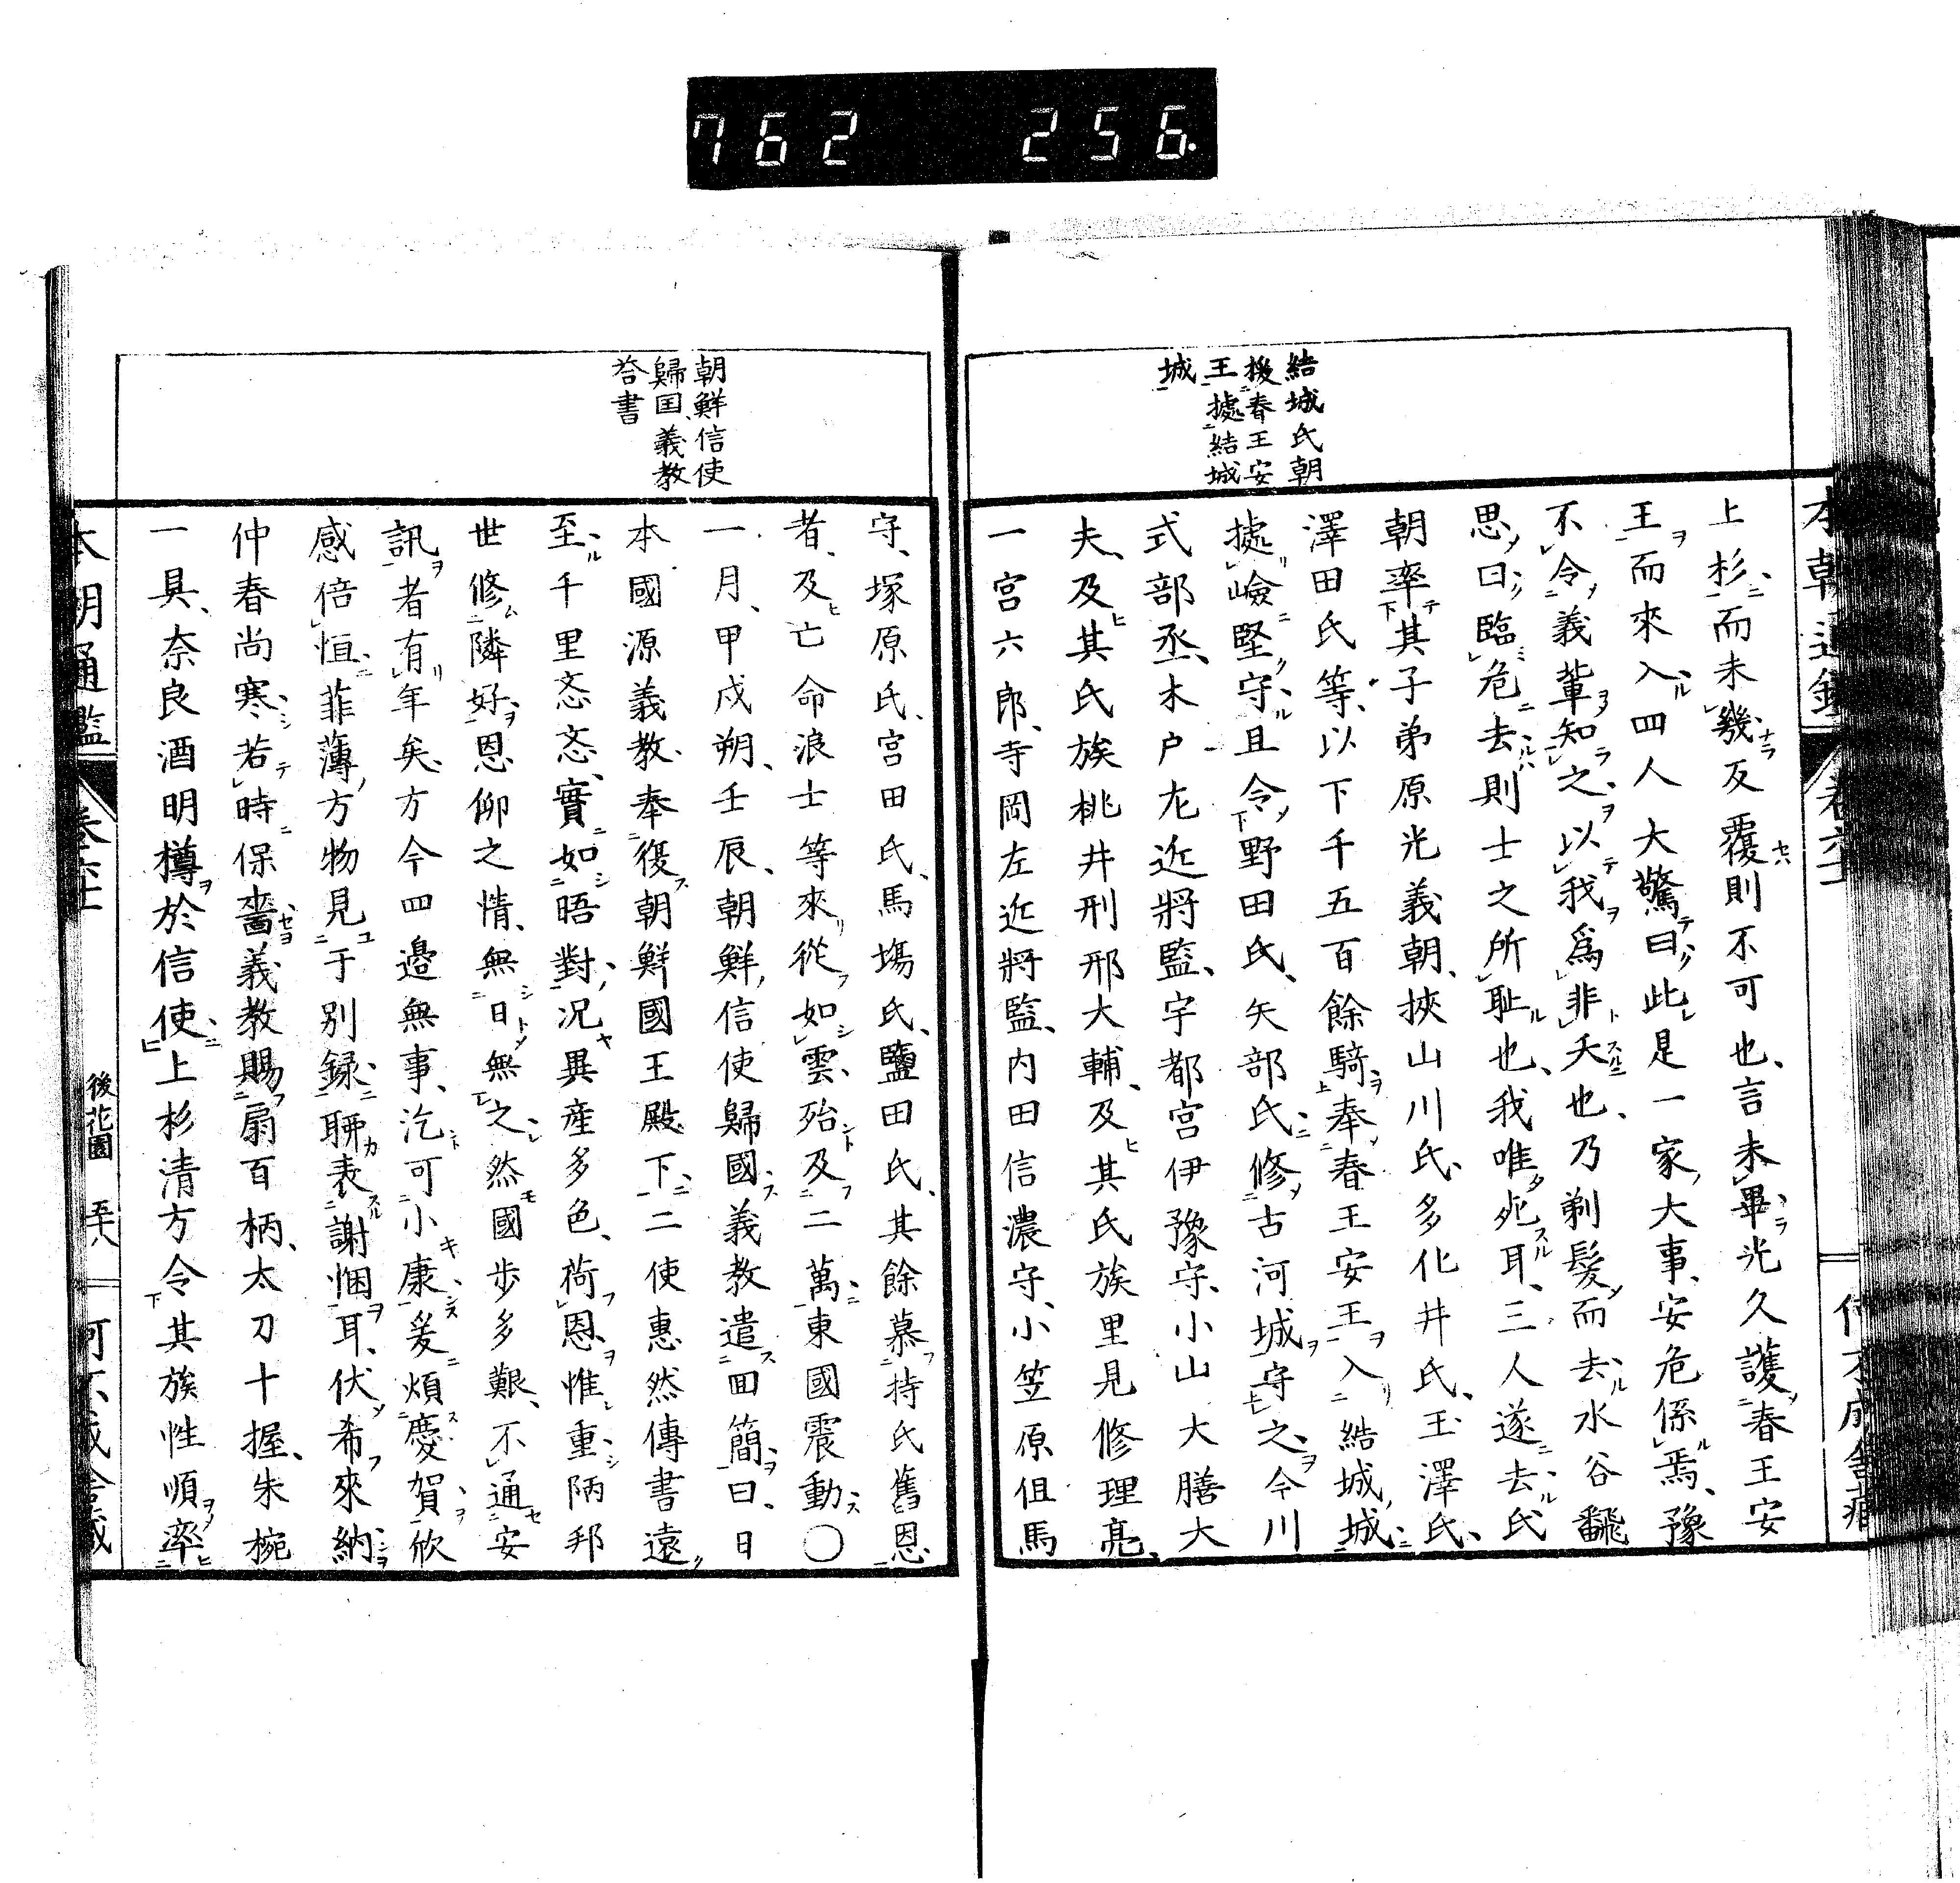 762 256.
結城氏朝
援春王安
王據結城
城
上杉而未幾反覆則不可也言未畢光久護春王安
王而來入四人大驚曰此是一家大事安危係焉豫
不令義輩知之以我爲非夭也乃剃髮而去水谷飜
思曰臨危去則士之所耻也我唯死耳三人遂去氏
朝率其子弟原光義朝挾山川氏多化井氏玉澤氏
澤田氏等以下千五百餘騎奉春王安王入結城城
據嶮堅守且令野田氏矢部氏修古河城守之今川
式部丞木户左近將監宇都宮伊豫守小山大膳大
夫及其氏族桃井刑部大輔及其氏族里見修理亮
一宮六郎寺岡左近將監内田信濃守小笠原但馬
朝鮮信使
歸国義教
答書
守塚原氏宮田氏馬塲氏鹽田氏其餘慕持氏舊恩
者及亡命浪士等來從如雲殆及二萬東國震動○
一月甲戌朔壬辰朝鮮信使歸國義教遣回簡曰日
本國源義教奉復朝鮮國王殿下二使惠然傳書遠
至千里忞忞實如晤對况異産多色荷恩惟重陋邦
世修隣好恩仰之情無日無之然國歩多艱不通安
訊者有年矣方今四邉無事汔可小康爰煩慶賀欣
感倍恒菲薄方物見于别録聊表謝悃耳伏希來納
仲春尚寒若時保嗇義教賜扇百柄太刀十握朱椀
一具奈良酒明樽於信使上杉清方令其族性順率
本朝通鑑
後花園